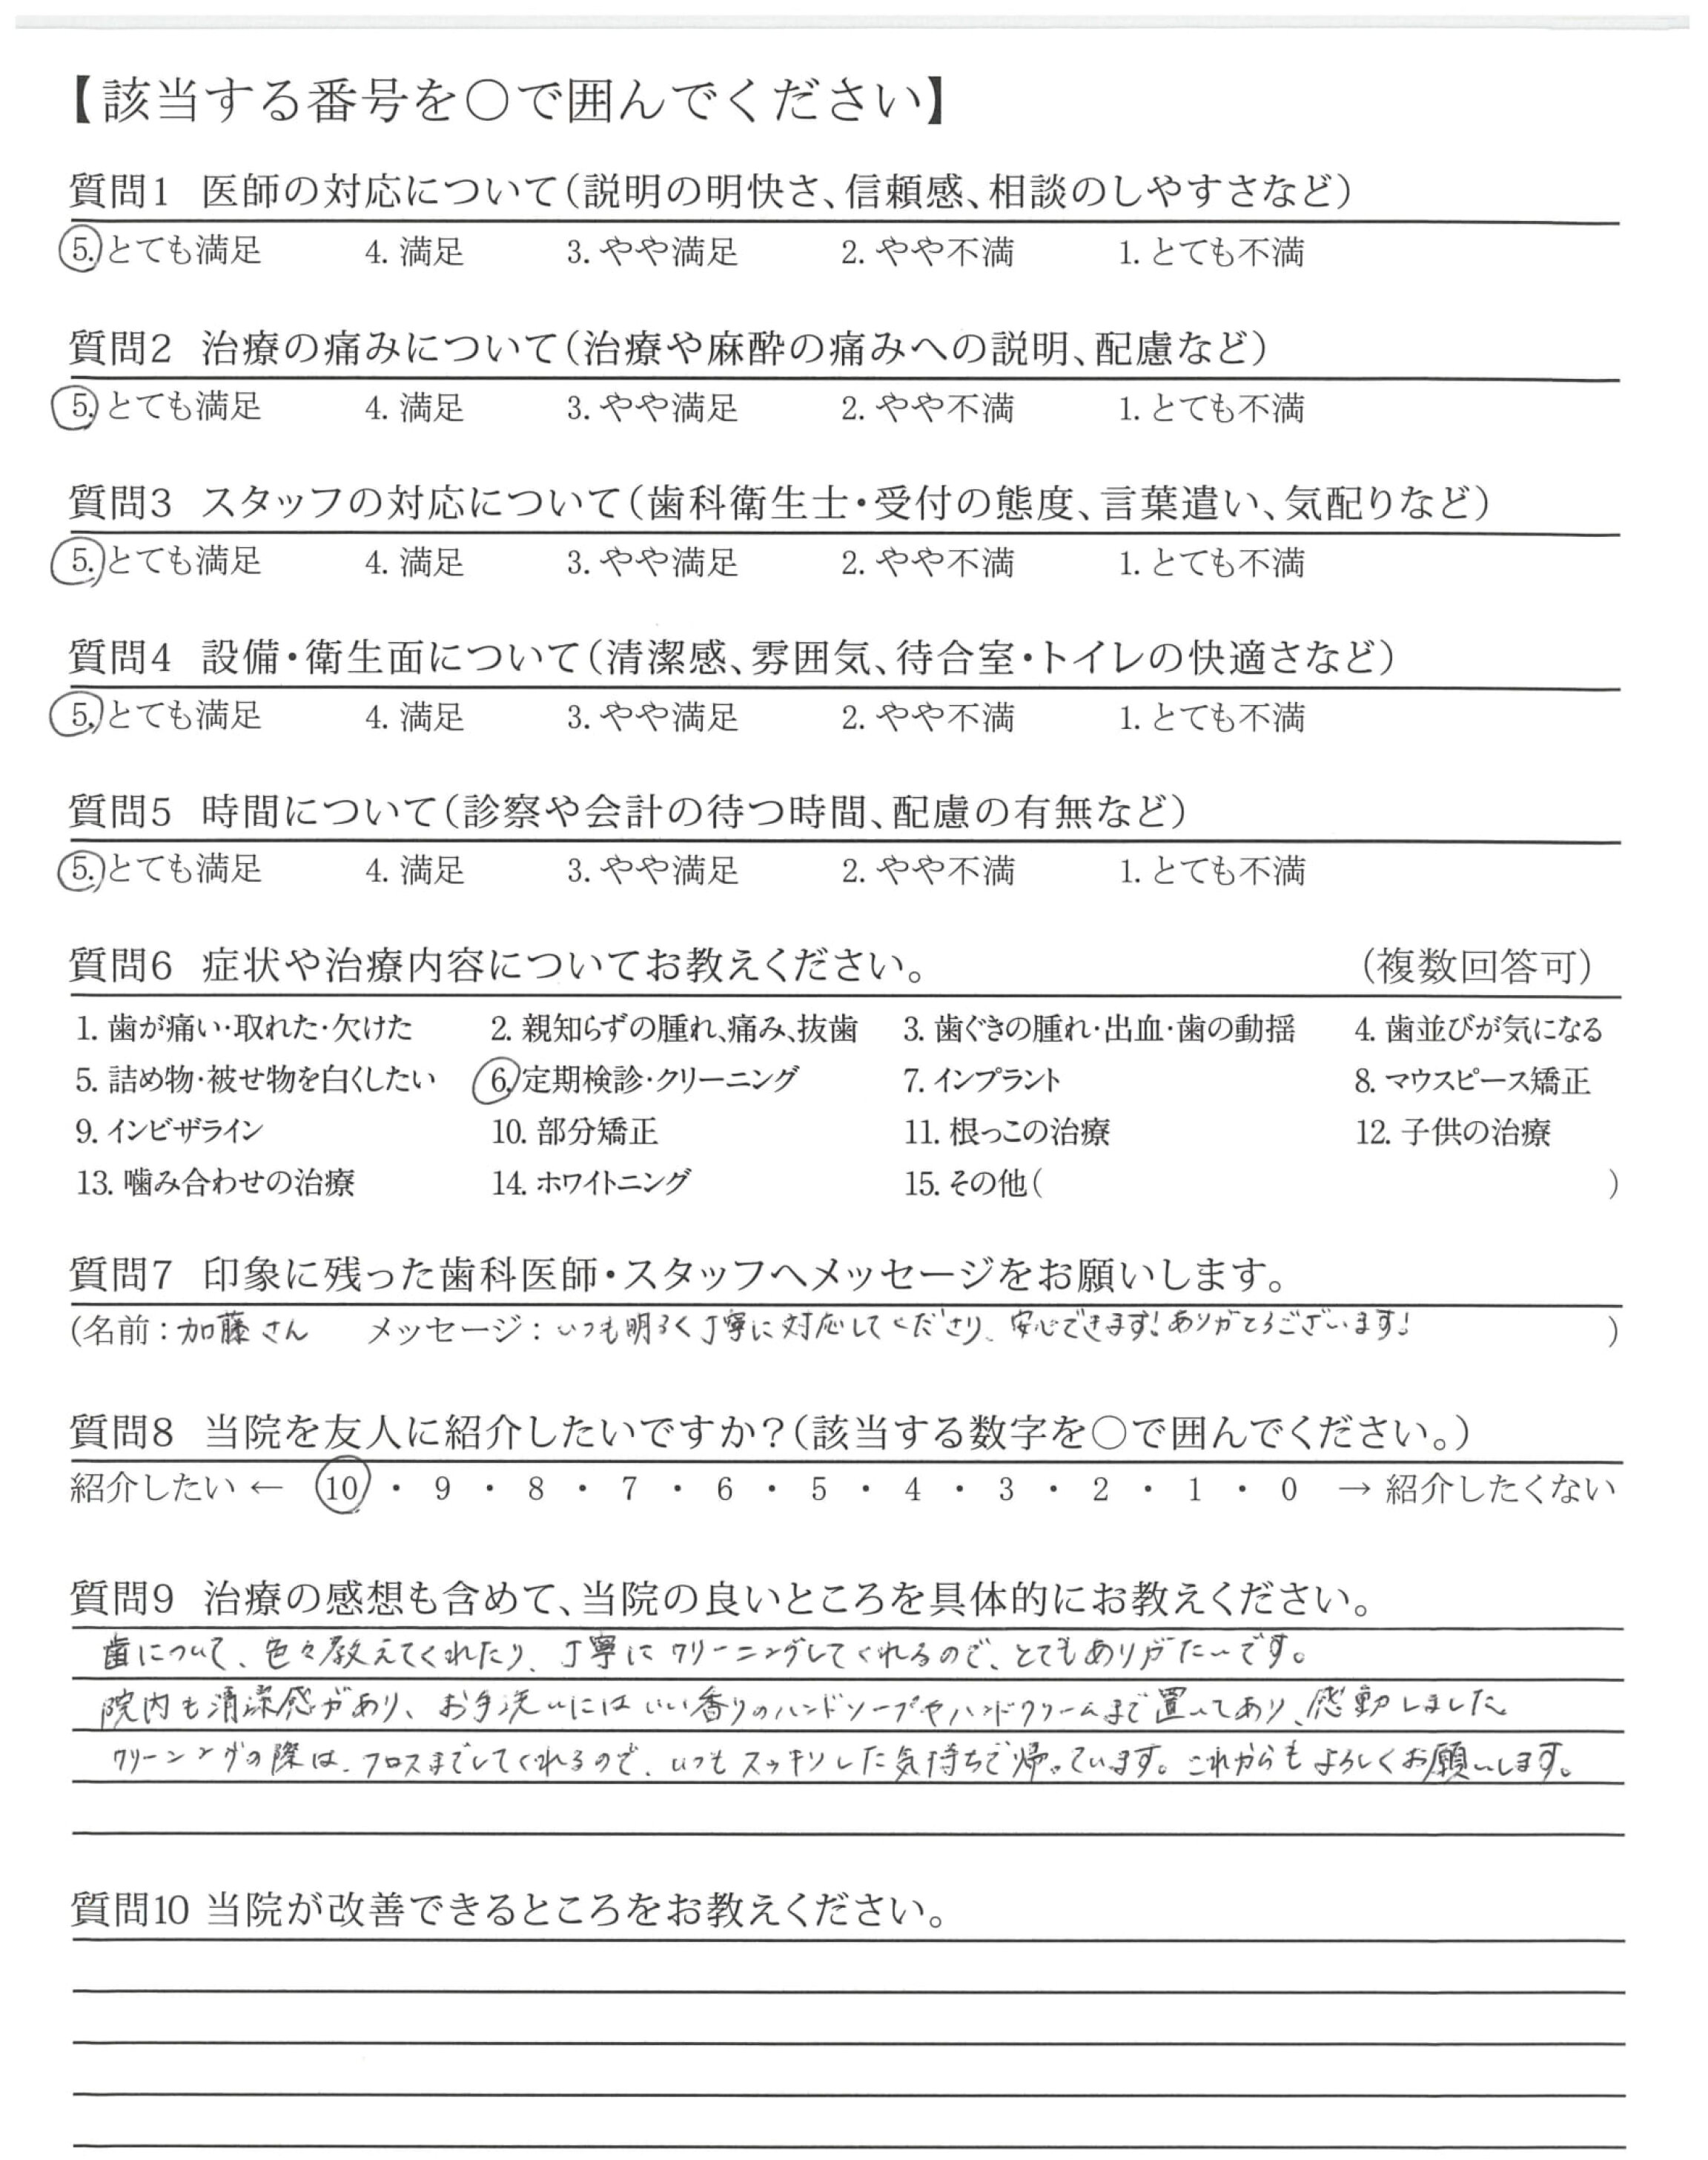 【該当する番号を○で囲んでください】
質問1 医師の対応について（説明の明快さ、信頼感、相談のしやすさなど）
5. とても満足 4. 満足 3. やや満足 2. やや不満 1. とても不満
質問2 治療の痛みについて（治療や麻酔の痛みへの説明、配慮など）
5. とても満足 4. 満足 3. やや満足 2. やや不満 1. とても不満
質問3 スタッフの対応について（歯科衛生士・受付の態度、言葉遣い、気配りなど）
5. とても満足 4. 満足 3. やや満足 2. やや不満 1. とても不満
質問4 設備・衛生面について（清潔感、雰囲気、待合室・トイレの快適さなど）
5. とても満足 4. 満足 3. やや満足 2. やや不満 1. とても不満
質問5 時間について（診察や会計の待つ時間、配慮の有無など）
5. とても満足 4. 満足 3. やや満足 2. やや不満 1. とても不満
質問6 症状や治療内容についてお教えください。 （複数回答可）
1. 歯が痛い・取れた・欠けた 2. 親知らずの腫れ、痛み、抜歯 3. 歯ぐきの腫れ・出血・歯の動揺 4. 歯並びが気になる
5. 詰め物・被せ物を白くしたい 6. 定期検診・クリーニング 7. インプラント 8. マウスピース矯正
9. インビザライン 10. 部分矯正 11. 根っこの治療 12. 子供の治療
13. 噛み合わせの治療 14. ホワイトニング 15. その他（ ）
質問7 印象に残った歯科医師・スタッフへメッセージをお願いします。
（名前：加藤さん メッセージ：いつも明るく丁寧に対応してくださり、安心できます！ありがとうございます！ ）
質問8 当院を友人に紹介したいですか？（該当する数字を○で囲んでください。）
紹介したい ← 10 ・ 9 ・ 8 ・ 7 ・ 6 ・ 5 ・ 4 ・ 3 ・ 2 ・ 1 ・ 0 → 紹介したくない
質問9 治療の感想も含めて、当院の良いところを具体的にお教えください。
歯について、色々教えてくれたり、丁寧にクリーニングしてくれるので、とてもありがたいです。
院内も清潔感があり、お手洗いにはいい香りのハンドソープやハンドクリームまで置いてあり、感動しました。
クリーニングの際は、フロスまでしてくれるので、いつもスッキリした気持ちで帰っています。これからもよろしくお願いします。
質問10 当院が改善できるところをお教えください。